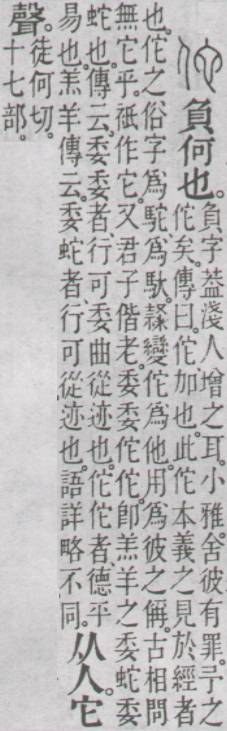 佗 負何也。
負字葢淺人增之耳。小雅。舍彼有罪。予之
佗矣。傳曰。佗加也。此佗本義之見於經者
也。佗之俗字爲駝、爲馱。隸變佗爲他。用爲彼之偁。古相問
無它乎。祇作它。又君子偕老。委委佗佗。卽羔羊之委蛇委
蛇也。傳云。委委者、行可委曲從迹也。佗佗者、德平
易也。羔羊傳云。委蛇者、行可從迹也。語詳略不同。
从人。它
聲。
徒何切。
十七部。